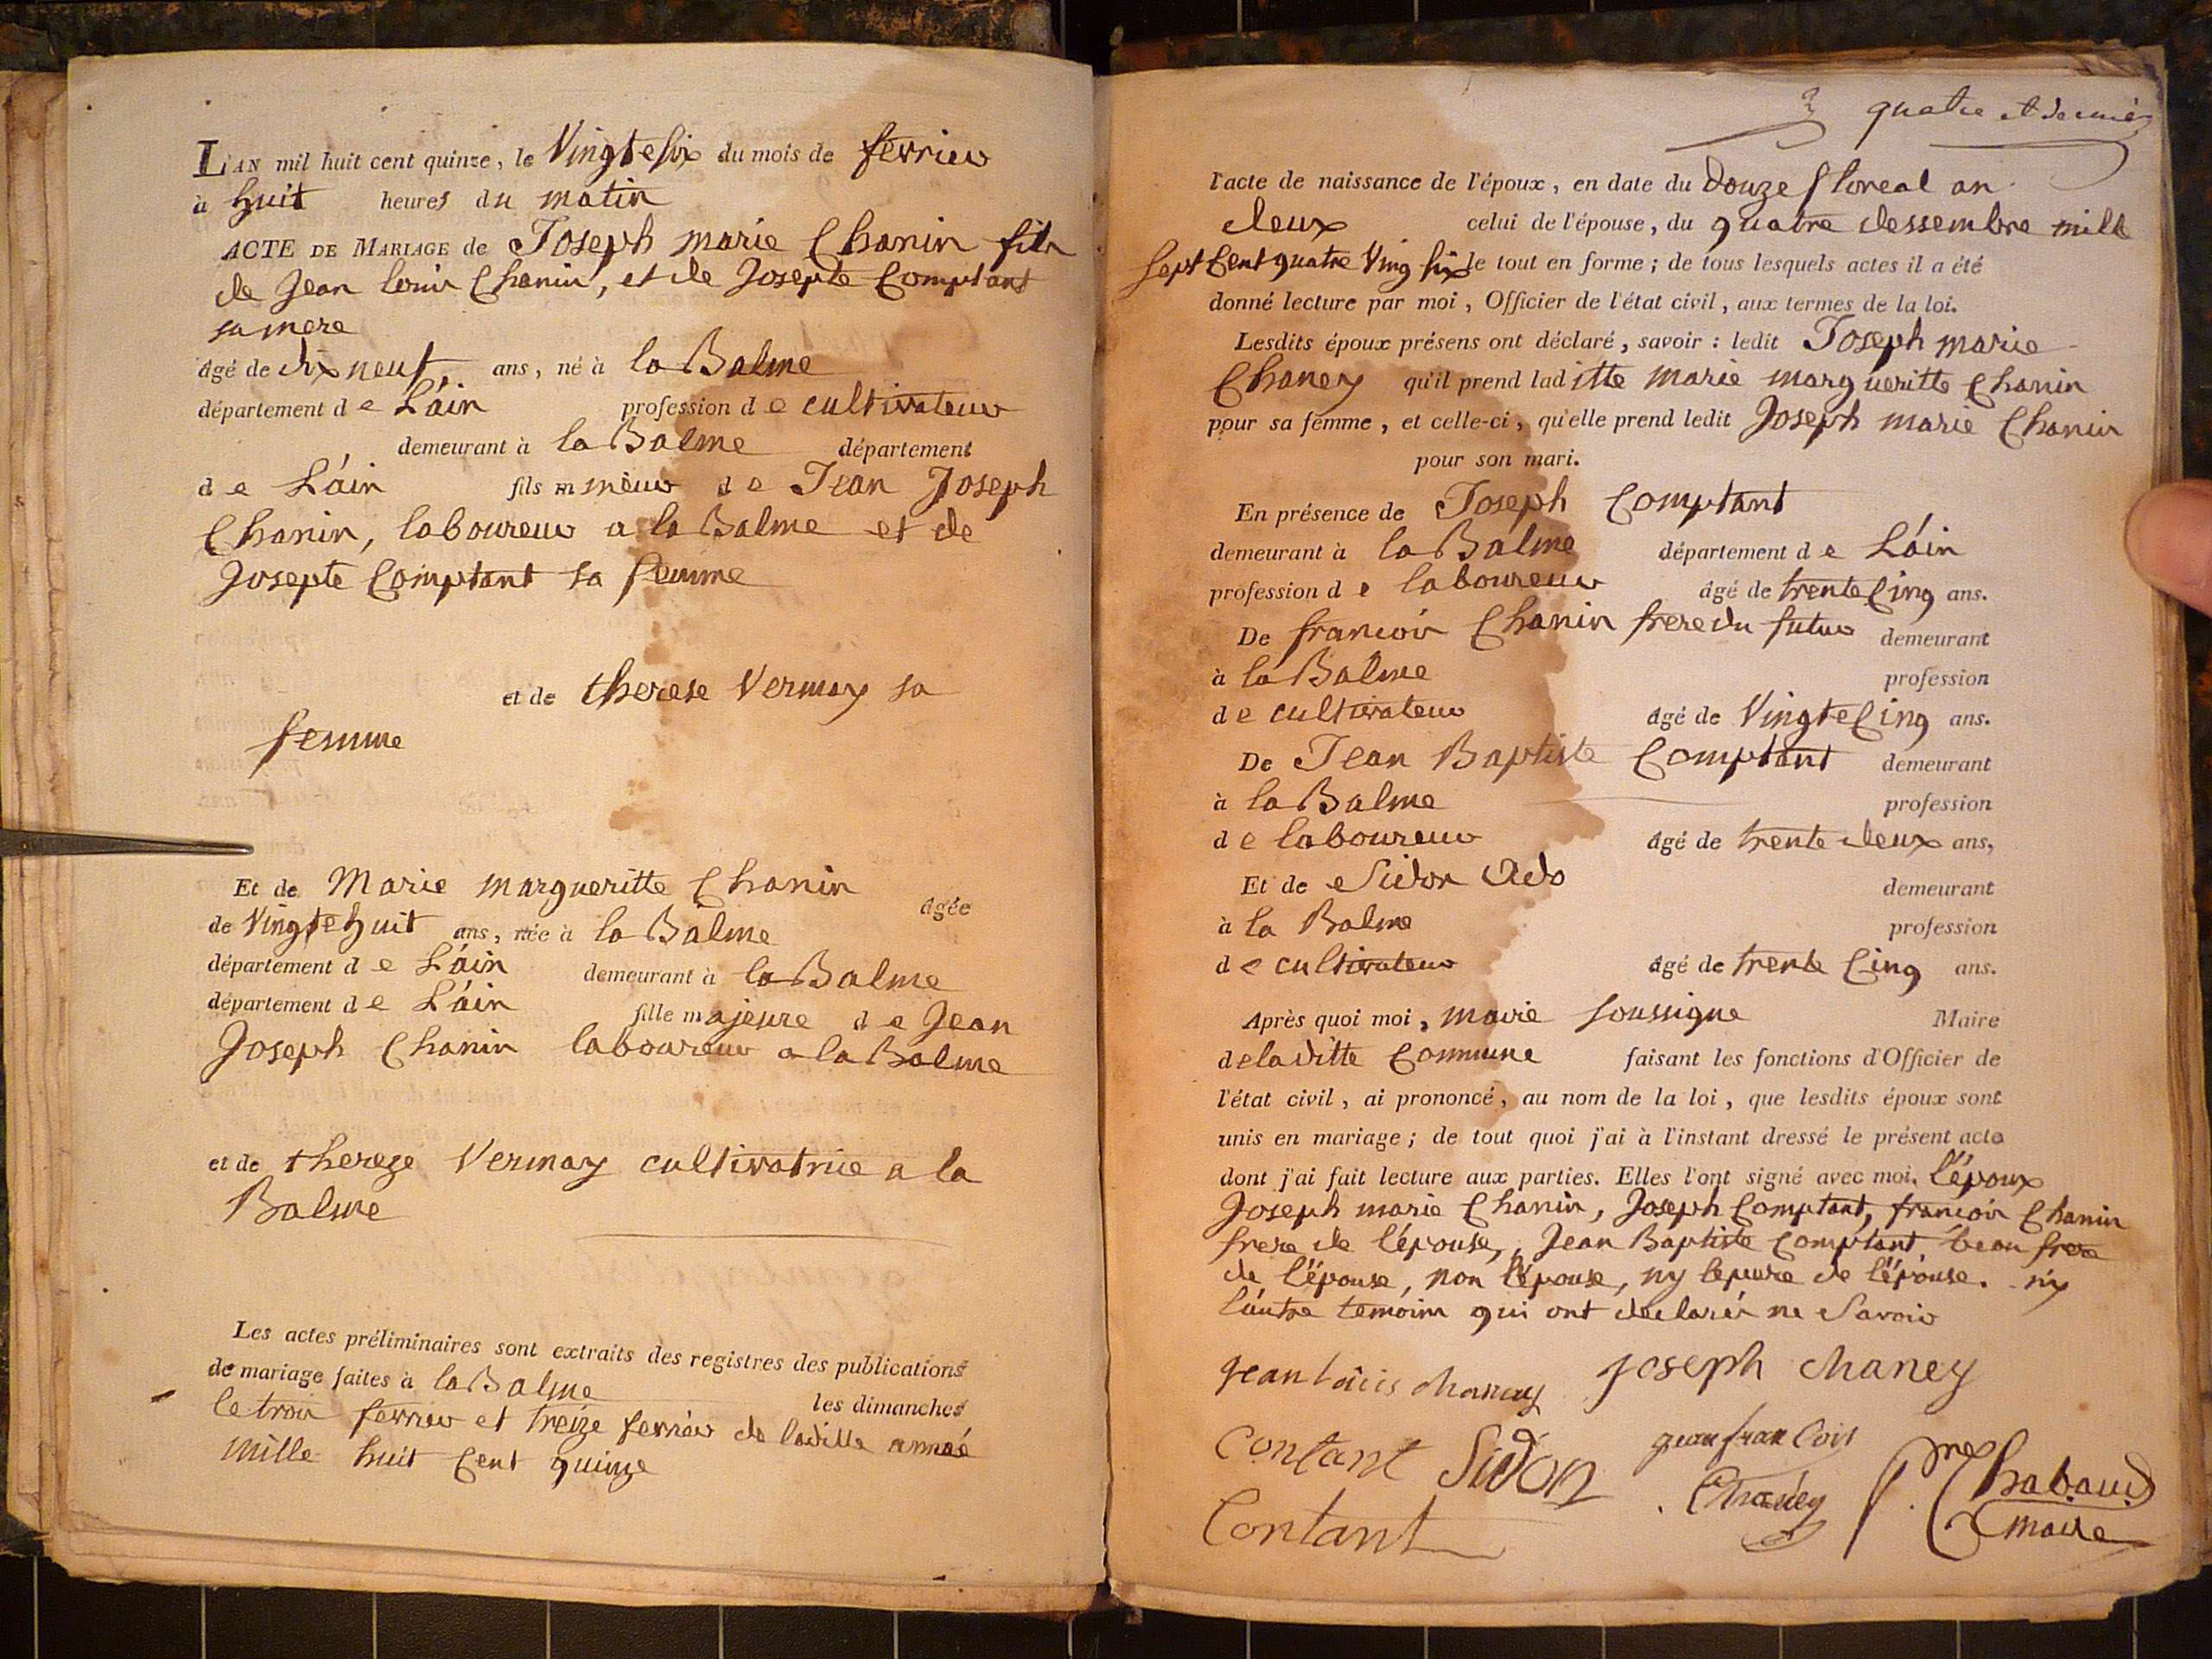 L'AN mil huit cent quinze, le Vingt e six du mois de fevrier
à huit heures du matin
ACTE DE MARIAGE de Joseph marie Chanin fils
de Jean louis Chanin, et de Josepte Comptant
sa mere
âgé de dix neuf ans, né à la Balme
département d e L'áin profession d e cultivateur
demeurant à la Balme département
d e L'áin fils m mineur d e Jean Joseph
Chanin, laboureur a la Balme et de
Josepte Comptant sa femme
et de therese Vermay sa
femme
Et de Marie margueritte Chanin
âgée
de Vingt e huit ans, née à la Balme
département d e L'áin demeurant à la Balme
département d e L'áin fille majeure d e Jean
Joseph Chanin laboureur a la Balme
et de thereze Vermay cultivatrice a la
Balme
Les actes préliminaires sont extraits des registres des publications
de mariage faites à la Balme les dimanches
le trois fevrier et treize fevrier de laditte année
mille huit Cent quinze
quatre et dernier
l'acte de naissance de l'époux, en date du Douze floreal an
deux celui de l'épouse, du quatre dessembre mille
sept Cent quatre Ving six le tout en forme; de tous lesquels actes il a été
donné lecture par moi, Officier de l'état civil, aux termes de la loi.
Lesdits époux présens ont déclaré, savoir: ledit Joseph marie
Chaney qu'il prend lad itte marie margueritte Chanin
pour sa femme, et celle-ci, qu'elle prend ledit Joseph marie Chanin
pour son mari.
En présence de Joseph Comptant
demeurant à la Balme département d e L'áin
profession d e laboureur âgé de trente Cinq ans.
De francois Chanin frere du futur demeurant
à la Balme profession
d e cultivateur âgé de Vingt e Cinq ans.
De Jean Baptiste Comptant demeurant
à la Balme profession
d e laboureur âgé de trente deux ans,
Et de Sidon Ado demeurant
à la Balme profession
d e cultivateur âgé de trente Cinq ans.
Après quoi moi, maire soussigne Maire
de laditte Commune faisant les fonctions d'Officier de
l'état civil, ai prononcé, au nom de la loi, que lesdits époux sont
unis en mariage; de tout quoi j'ai à l'instant dressé le présent acte
dont j'ai fait lecture aux parties. Elles l'ont signé avec moi, l'époux
Joseph marie Chanin, Joseph Comptant, francois Chanin
frere de l'épouse, Jean Baptiste Comptant, beau frere
de l'épouse, non l'épouse, ny le pere de l'épouse. ny
l'áutre temoins qui ont declarés ne Savoir
jean louis chaney joseph chaney
contant Sidon jean francois
Contant Chaney Chabaud
maire